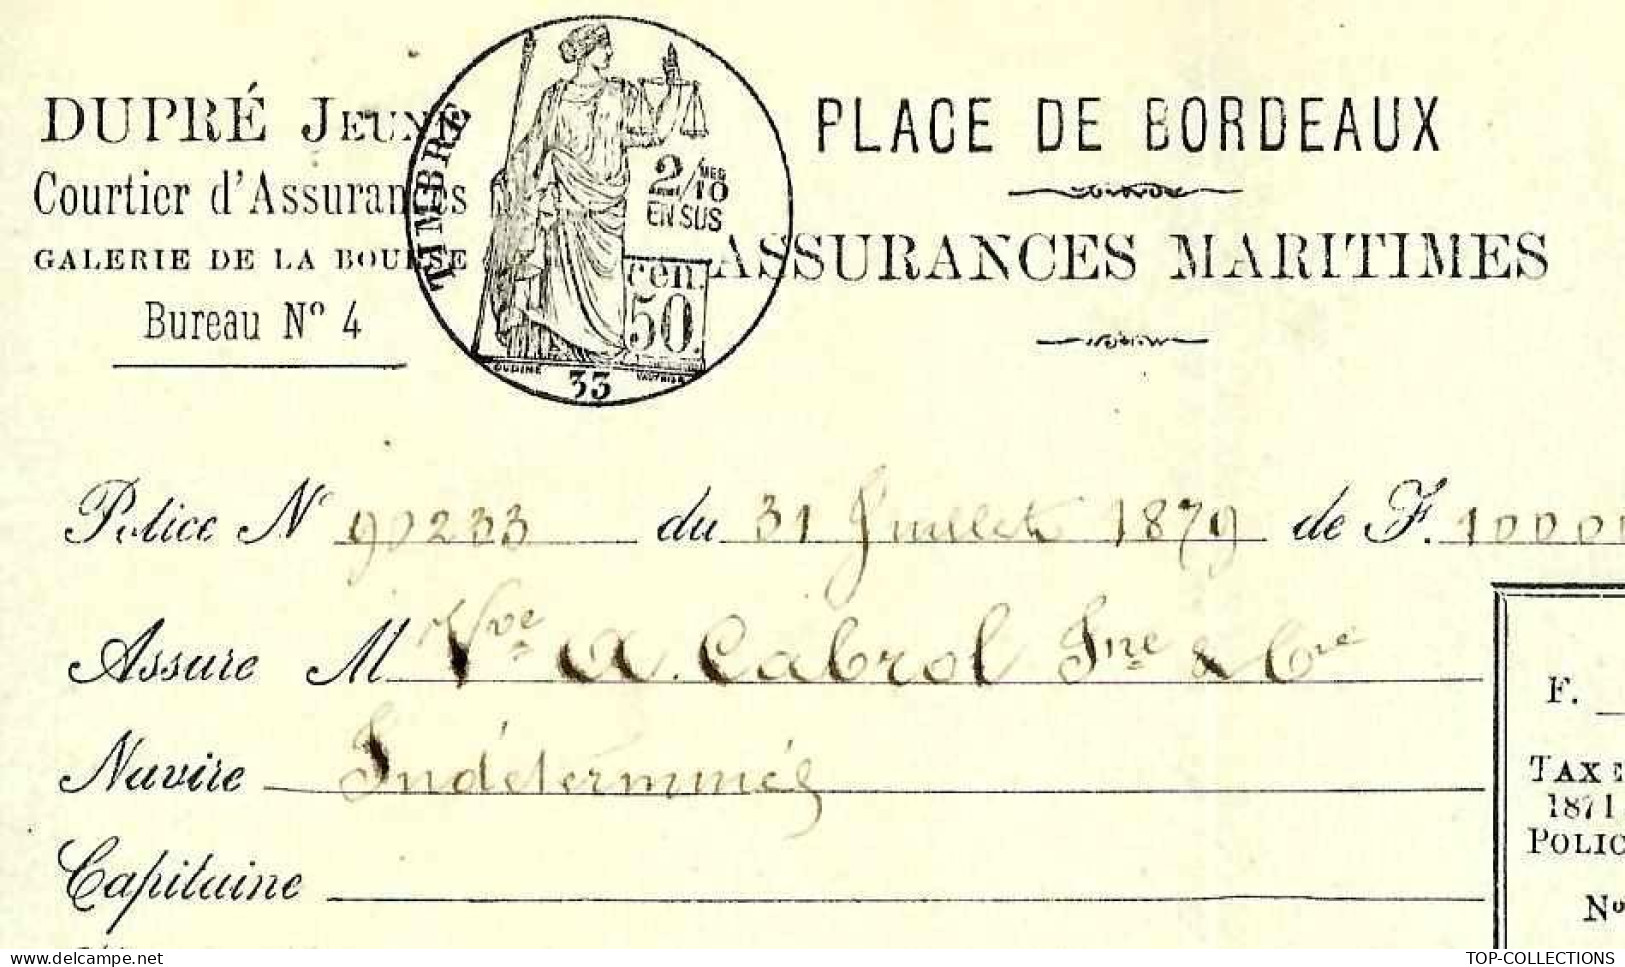 DUPRÉ JEUNE
Courtier d'Assurances
GALERIE DE LA BOURSE
Bureau Nº 4
TIMBRE
2/10 MES
EN SUS
cen.
50.
OUDINÉ
33
VAUTHIER
PLACE DE BORDEAUX
ASSURANCES MARITIMES
Police Nº 90233 du 31 Juillet 1879 de F. 10000
Assuré M Vve A. Cabrol Jne & Cie
Navire Indéterminés
Capitaine
F.
TAXE
1871
POLIC
Nº
TOP-COLLECTIONS